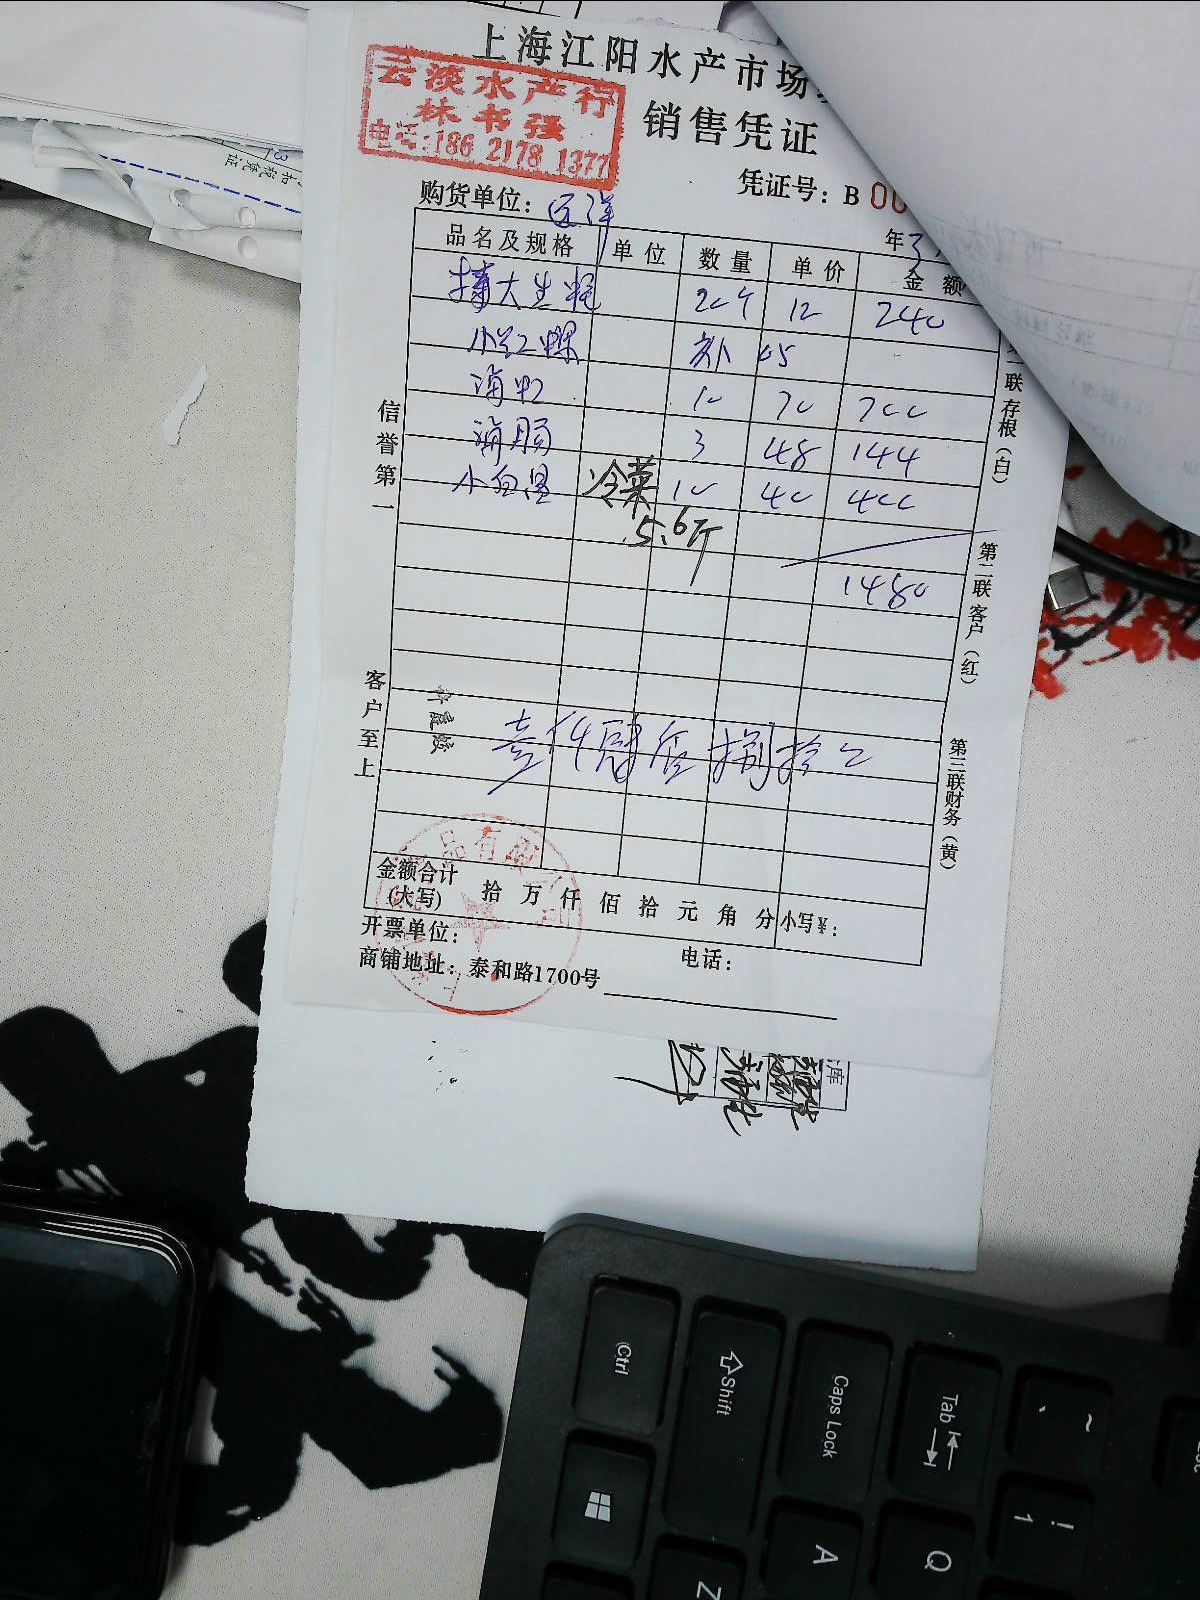 上海江阳水产市场
云淡水产行
林书强
电话:186 2178 1377
销售凭证
凭证号: B 00
购货单位: 远洋
年 3
品名及规格 单位 数量 单价 金额
大生蚝 20个 12 240
小红螺 补 05
海虹 10 70 700
海肠 3 48 144
小白 冷菜 10 40 400
5.6斤
1480
壹仟肆佰捌拾
信誉第一
客户至上
联存根(白)
第二联客户(红)
第三联财务(黄)
金额合计
(大写) 拾 万 仟 佰 拾 元 角 分 小写¥:
开票单位:
电话:
商铺地址: 泰和路1700号
品有限
库
Ctrl
Shift
Caps Lock
Tab
~
!
1
A
Q
Z